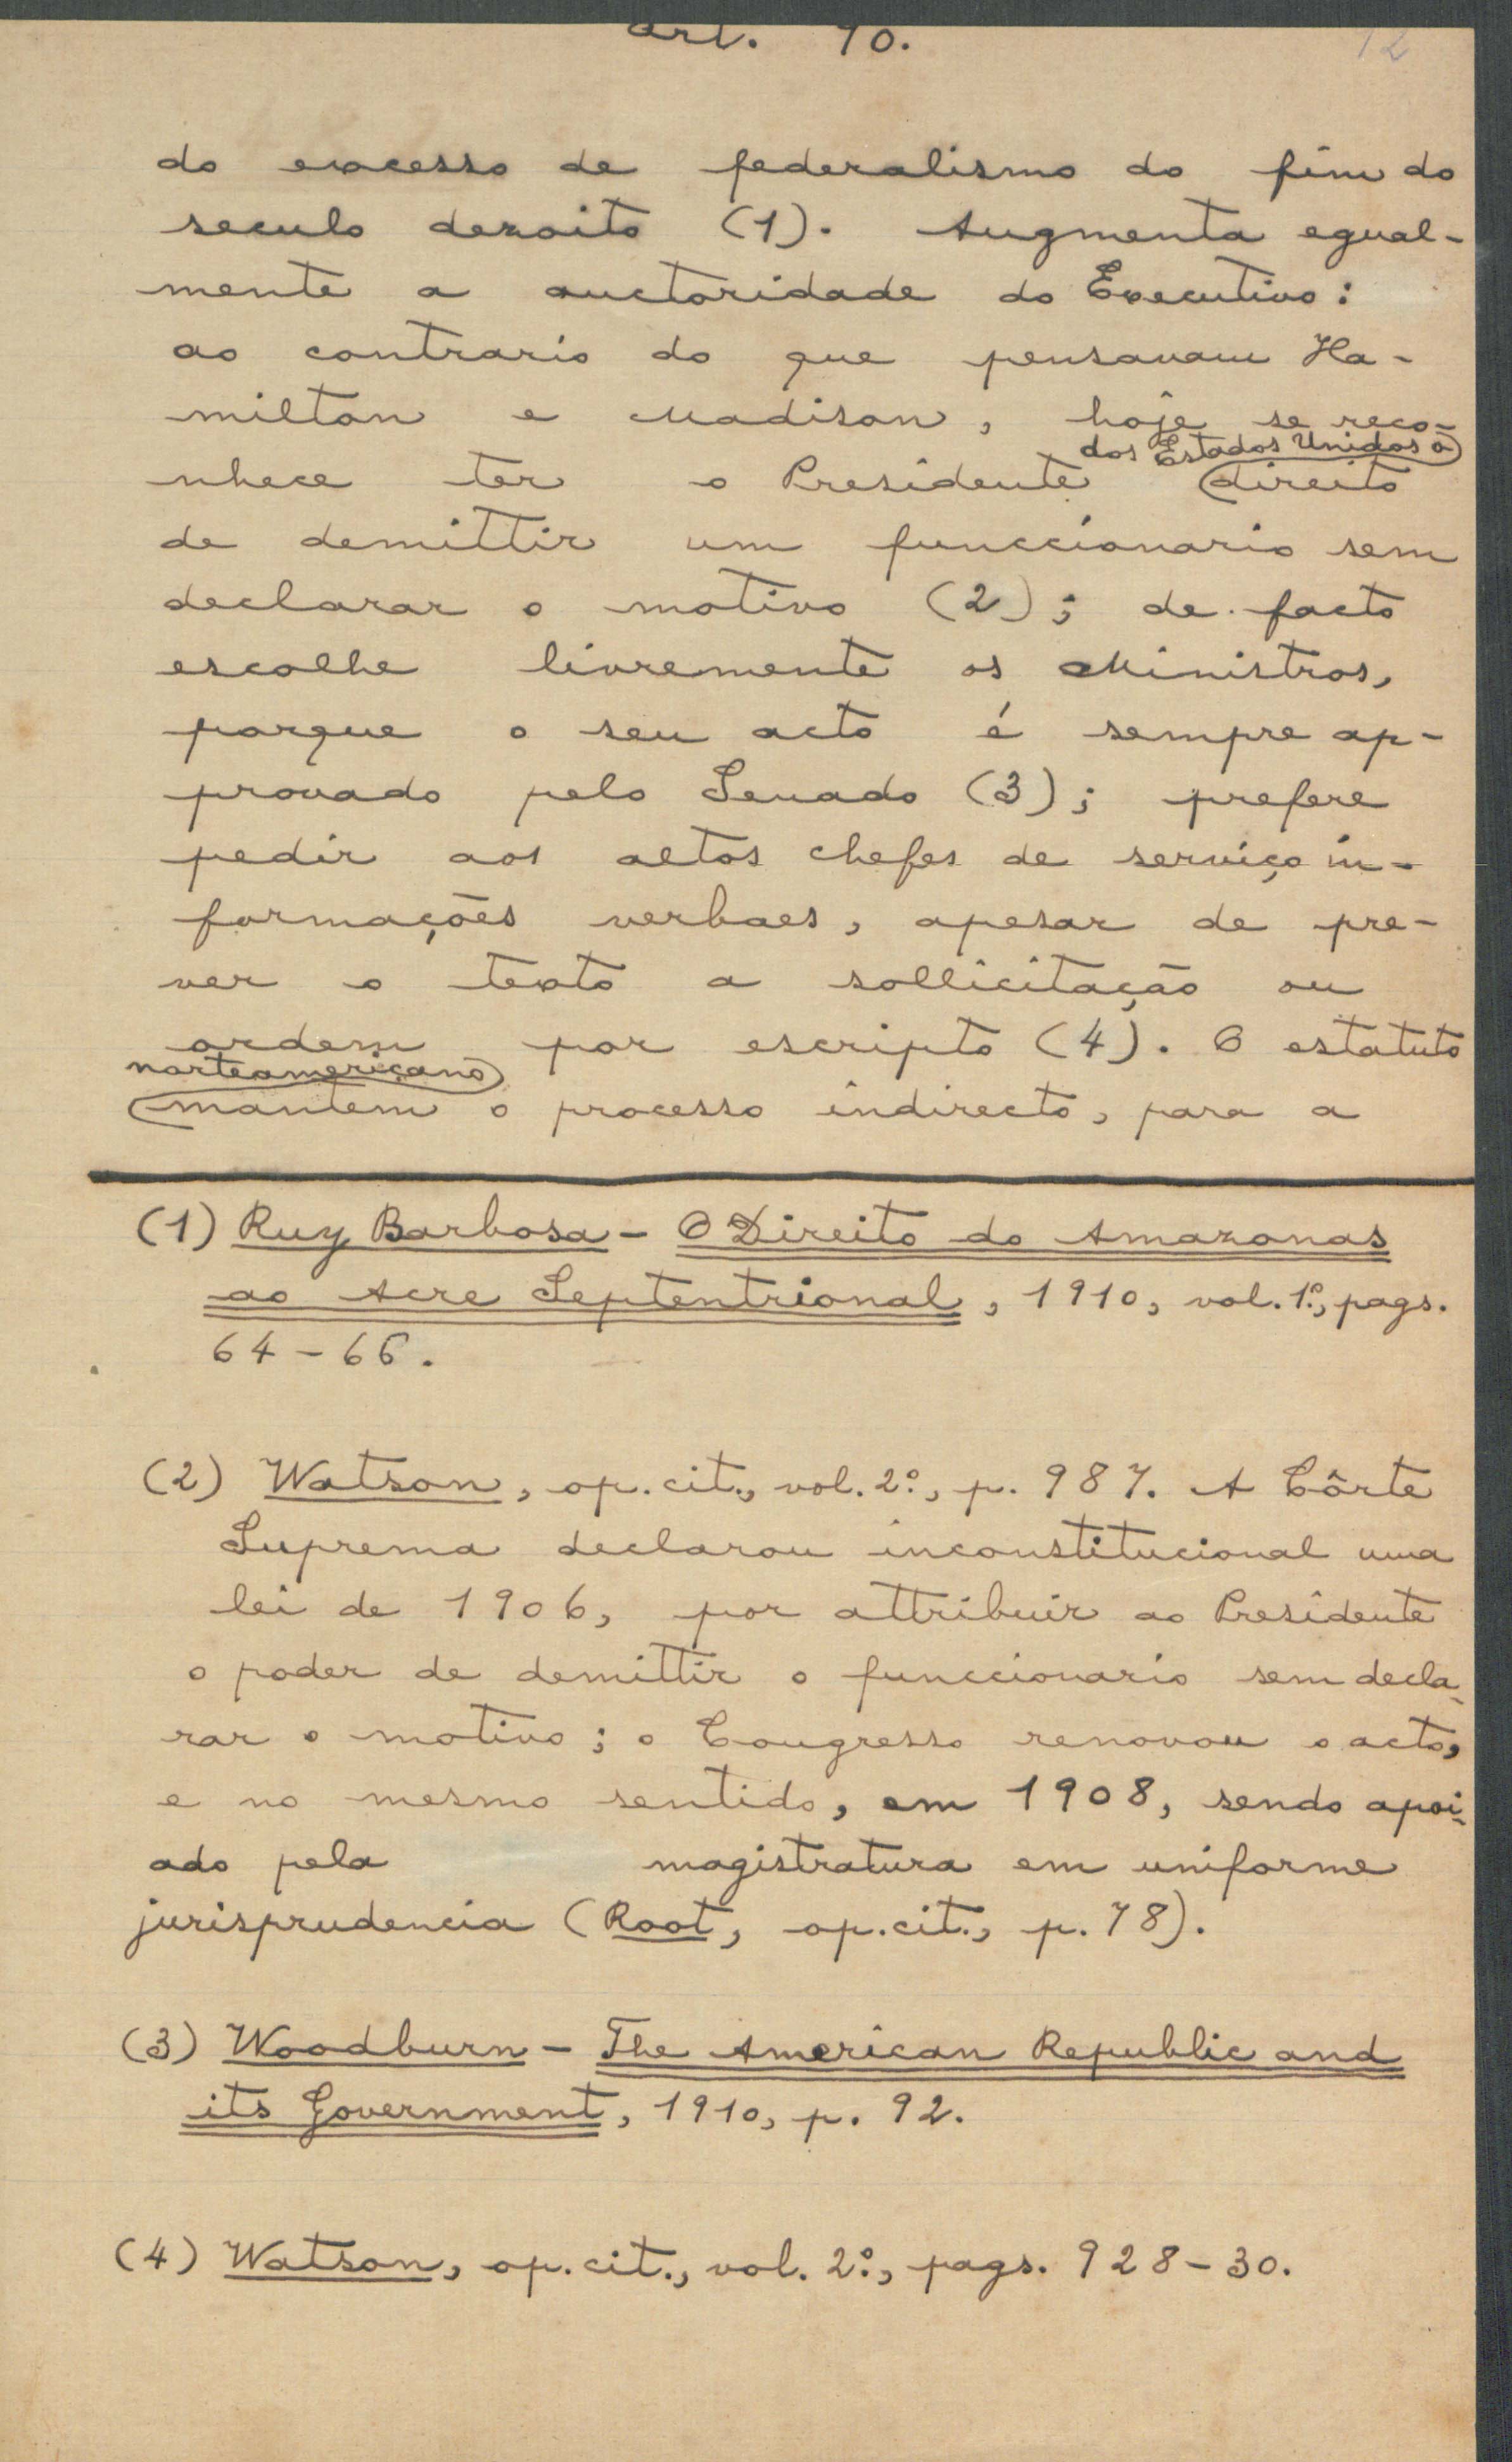 art. 90.
12
do excesso de federalismo do fim do
seculo dezoito (1). Augmenta egual-
mente a auctoridade do Executivo:
ao contrario do que pensavam Ha-
milton e Madison, hoje se reco-
dos Estados Unidos o
nhece ter o Presidente direito
de demittir um funccionario sem
declarar o motivo (2); de facto
escolhe livremente os Ministros,
porque o seu acto é sempre ap-
provado pelo Senado (3); prefere
pedir aos altos chefes de serviço in-
formações verbaes, apesar de pre-
ver o texto a sollicitação ou
ordem por escripto (4). O estatuto
norteamericano
mantem o processo indirecto, para a
(1) Ruy Barbosa - O Direito do Amazonas
ao Acre Septentrional, 1910, vol. 1º, pags.
64-66.
(2) Watson, op. cit., vol. 2º, p. 987. A Côrte
Suprema declarou inconstitucional uma
lei de 1906, por attribuir ao Presidente
o poder de demittir o funccionario sem decla-
rar o motivo; o Congresso renovou o acto,
e no mesmo sentido, em 1908, sendo apoi-
ado pela magistratura em uniforme
jurisprudencia (Root, op. cit., p. 78).
(3) Woodburn - The American Republic and
its Government, 1910, p. 92.
(4) Watson, op. cit., vol. 2º, pags. 928-30.